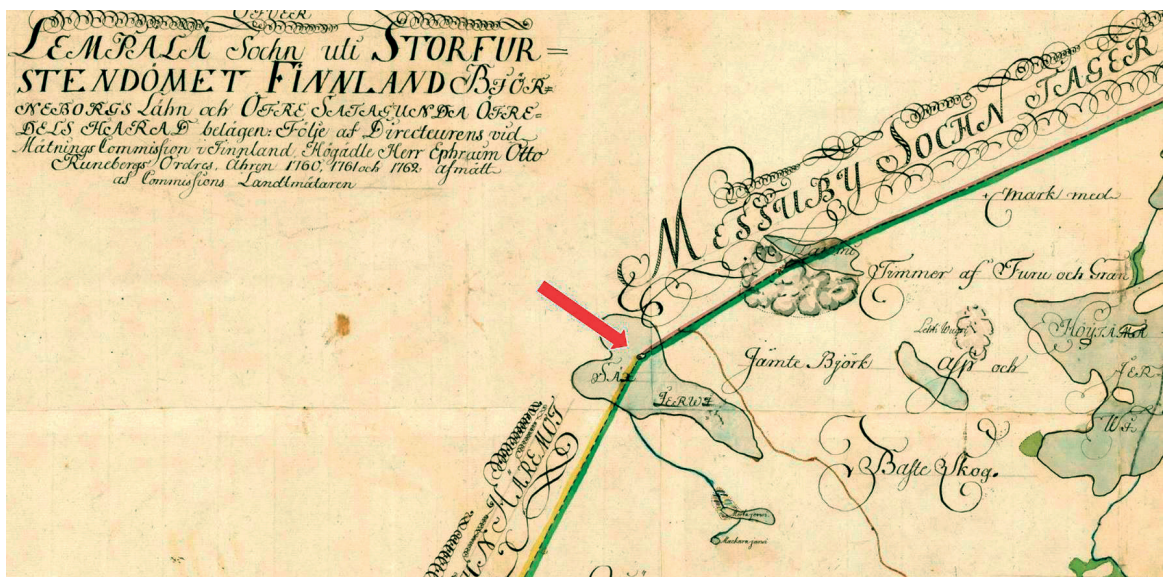 ÖFVER
LEMPALÄ Sochn uti STORFUR=
STENDÖMET FINNLAND BJÖR=
NEBORGS Låhn och ÖFRE SATAGUNDA ÖFRE=
DELS HÄRAD belägen: Följe af Directeurens vid
Mätnings Commission i Finnland, Högädle Herr Ephraim Otto
Runebergs Ordres, Åhren 1760, 1761 och 1762 afmätt
af Commissions Landtmätaren
MESSUBY SOCHN TAGER
mark med
Timmer af Furu och Gran
HÖYTÄMÄ
JER-
WI
Jämte Björk Asp och
SA
JERWI
Baste Skog.
HN HÄREMOT